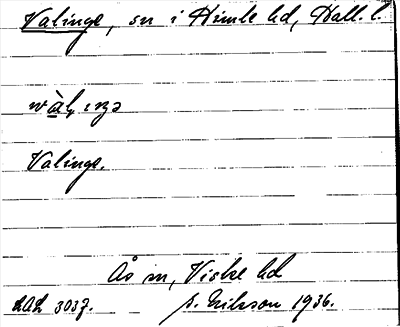 Valinge, sn i Himle hd, Hall. l.
wàl, ıŋə
Valinge.
Ås sn, Viske hd
LAL 3037. S. Eriksson 1936.